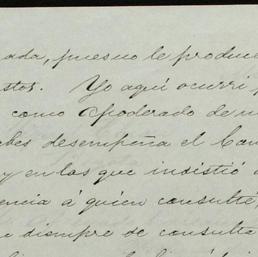 ada, pues no le produce
stos. Yo aquí ocurrí
como Apoderado de m
bes desempeña el Con
y en las que indistió
encia á quien consulté,
siempre de consulta